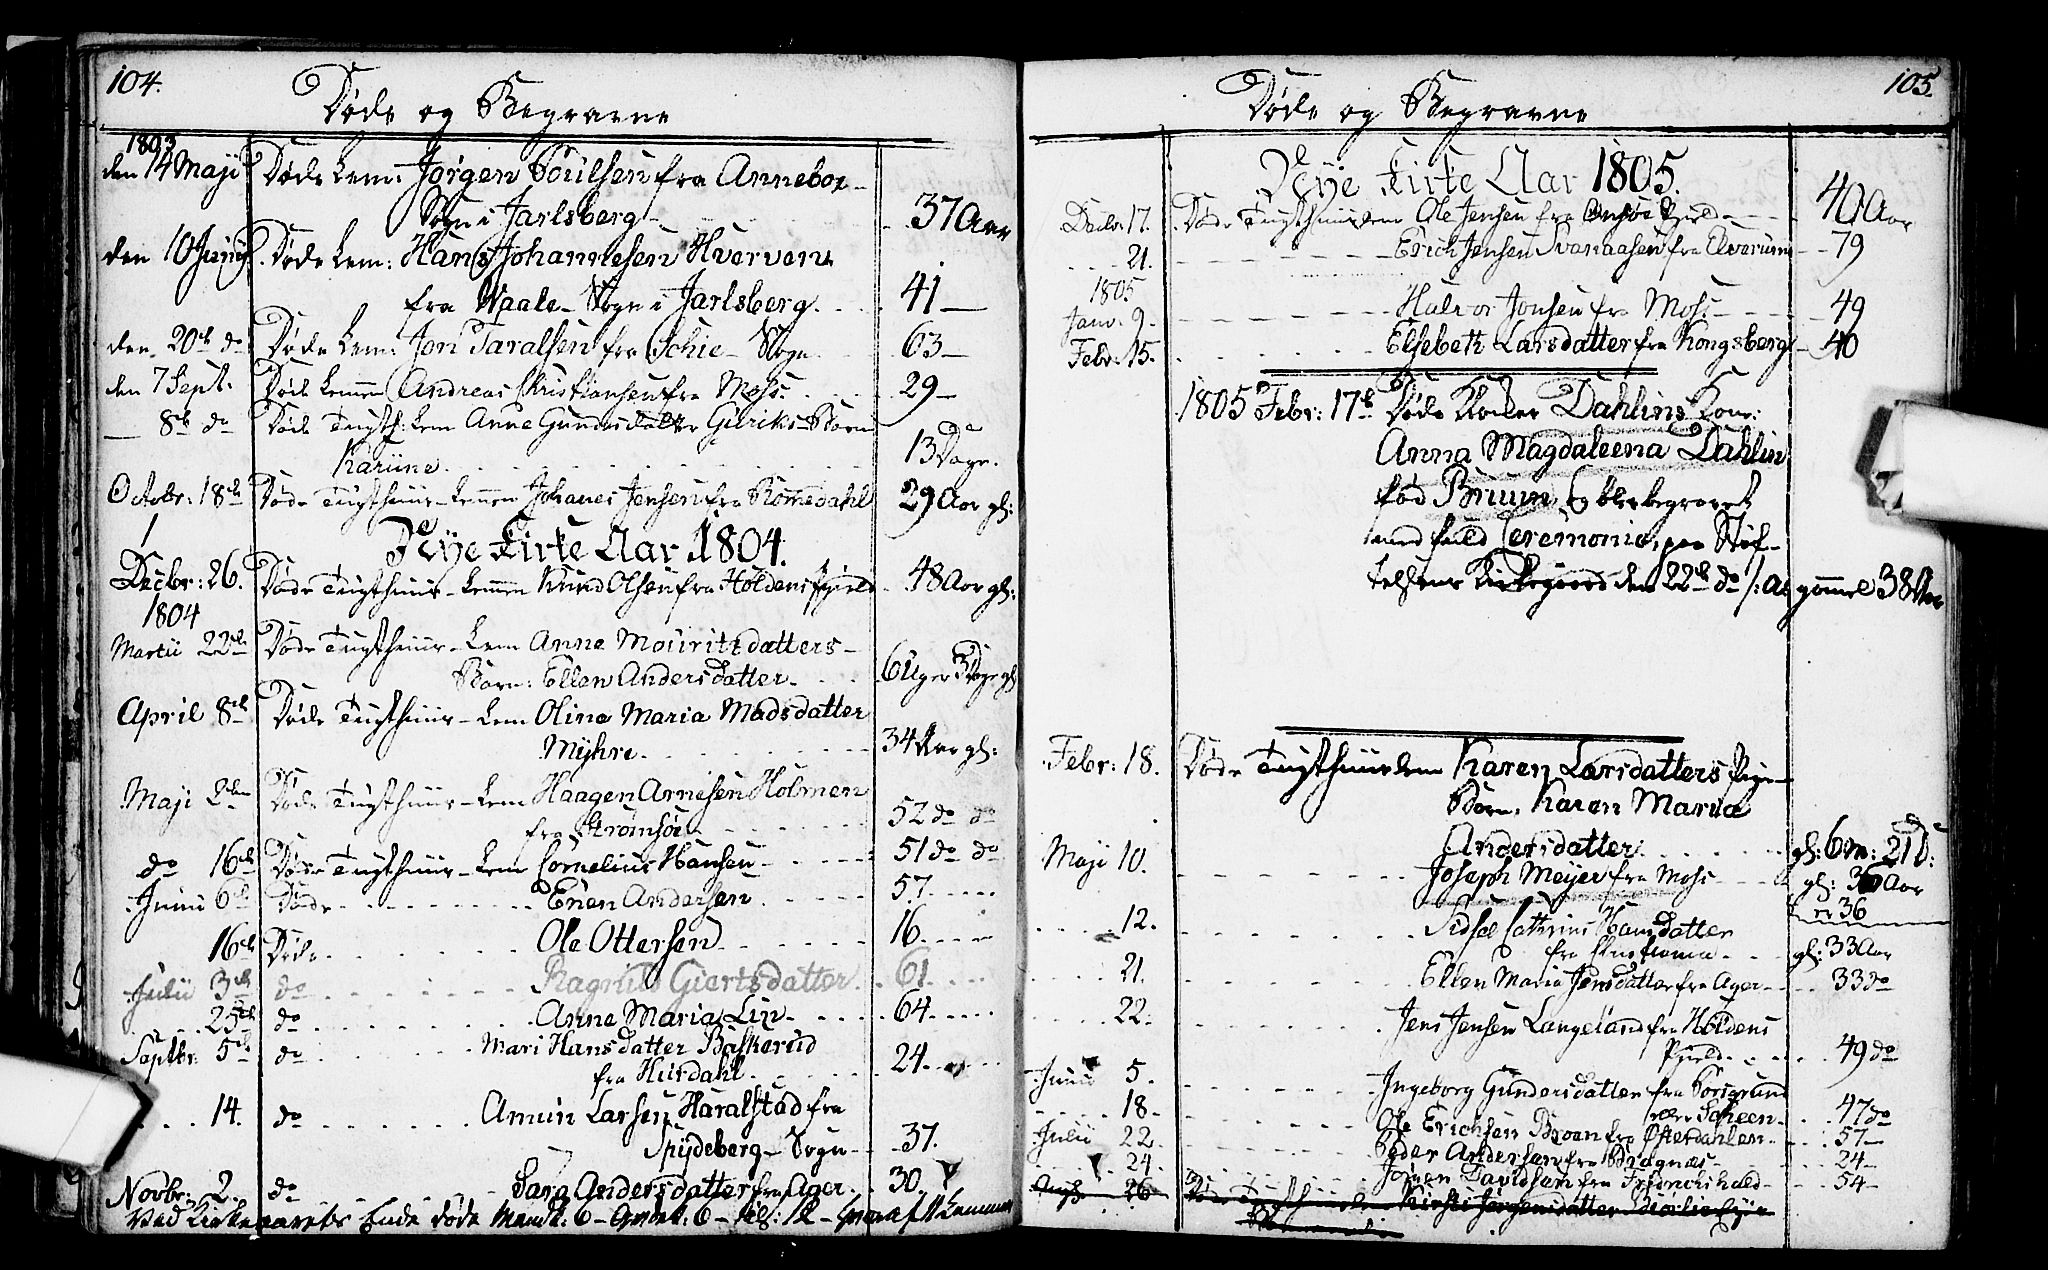 104.
Døde og Begravne
1803
den 14 Maji Døde Lem: Jørgen Poulsen fra Anneboe
Sogn i Jarlsberg 37 Aar
den 10 Junij Døde Lem: Hans Johannesen Hverven
fra Waale Sogn i Jarlsberg 41
den 20de do Døde Lem: Jon Taralsen fra Schie Sogn 63
den 7 Sept. Døde Lemmen Andreas Christiansen fra Moss 29
8de do Døde Tugth: Lem Anne Gundersdatter Guriks Barn
Karüne 13 Dage.
Octobr: 18de Døde Tugthuus-Lemmen Johanes Jensen fra Romedahl 29 Aar gl:
Nye Kirke Aar 1804.
Decbr: 26. Døde Tugthuus-Lemmen Knud Olsen fra Høldens Pgield 48 Aar gl:
1804
Martii 22de Døde Tugthuus-Lem Anne Mouritzdatters
Barn: Ellen Andersdatter 6 Uger 3 Dage gl
April 8de Døde Tugthuus-Lem Olina Maria Madsdatter
Myhre 34 Aar gl:
Maji 2den Døde Tugthuus-Lem Haagen Arnesen Holmen
fra Strømsøe 52 do do
do 16de Døde Tugthuus-Lem Cornelius Hansen 51 do do
Junii 6te Døde Enen Andersen 57.
16de Døde Ole Ottersen 16.
Julii 3de do Ragnild Giertsdatter 61.
25de do Anne Maria Lin 64
Septbr: 5te do Mari Hansdatter Baskerud
fra Hurdahl 24.
14. do Amun Larsen Haralstad fra
Spydeberg Sogn 37.
Novbr: 2. do Sara Andersdatter fra Ager 30.
Ved Kirkeaarets Ende døde Mandk: 6 - Qvindk: 6 - til: 12
105.
Døde og Begravne
Nye Kirke Aar 1805.
Decbr: 17. Døde Tugthuuslem Ole Jensen fra Onsøe Pgield 40 Aar
21. Erich Jensen Svenaasen fra Elverum 79
1805
Janv: 9. Halvor Jonsen fra Moss 49
Febr: 15. Elsebeth Larsdatter fra Kongsberg 40
1805 Febr: 17de Døde Klocker Dahlins Kone:
Anna Magdaleena Dahlin
fød Bruun, og blev begravet
med fuld Ceremonie, paa Stif-
telsens Kirkegaard den 22de do /: al gammel 38 Aar
Febr: 18. Døde Tugthuuslem Karen Larsdatters Pige
Barn, Karen Maria
Andersdatter gl: 6 M: 21 D:
Maji 10. Joseph Meyer fra Moss gl: 36 Aar
er 36
12. Sidsel Cathrine Hansdatter
fra Christiania gl: 33 Aar
21. Ellen Maria Jensdatter fra Ager 33 do
22. Jens Jensen Langeland fra Høldens
Pgield 49 do
Junii 5. Ingeborg Gundersdatter fra Porsgrund
eller Scheen 47 do
18. Ole Erichsen Broen fra Østerdahlen 57
Julii 22. Peder Andersen fra Bragnæs 24
24. Jören Davidsen fra Fridrichshald 54
Aug: 26 Døde Tugthuuslem Kirsti Jørgensdatter